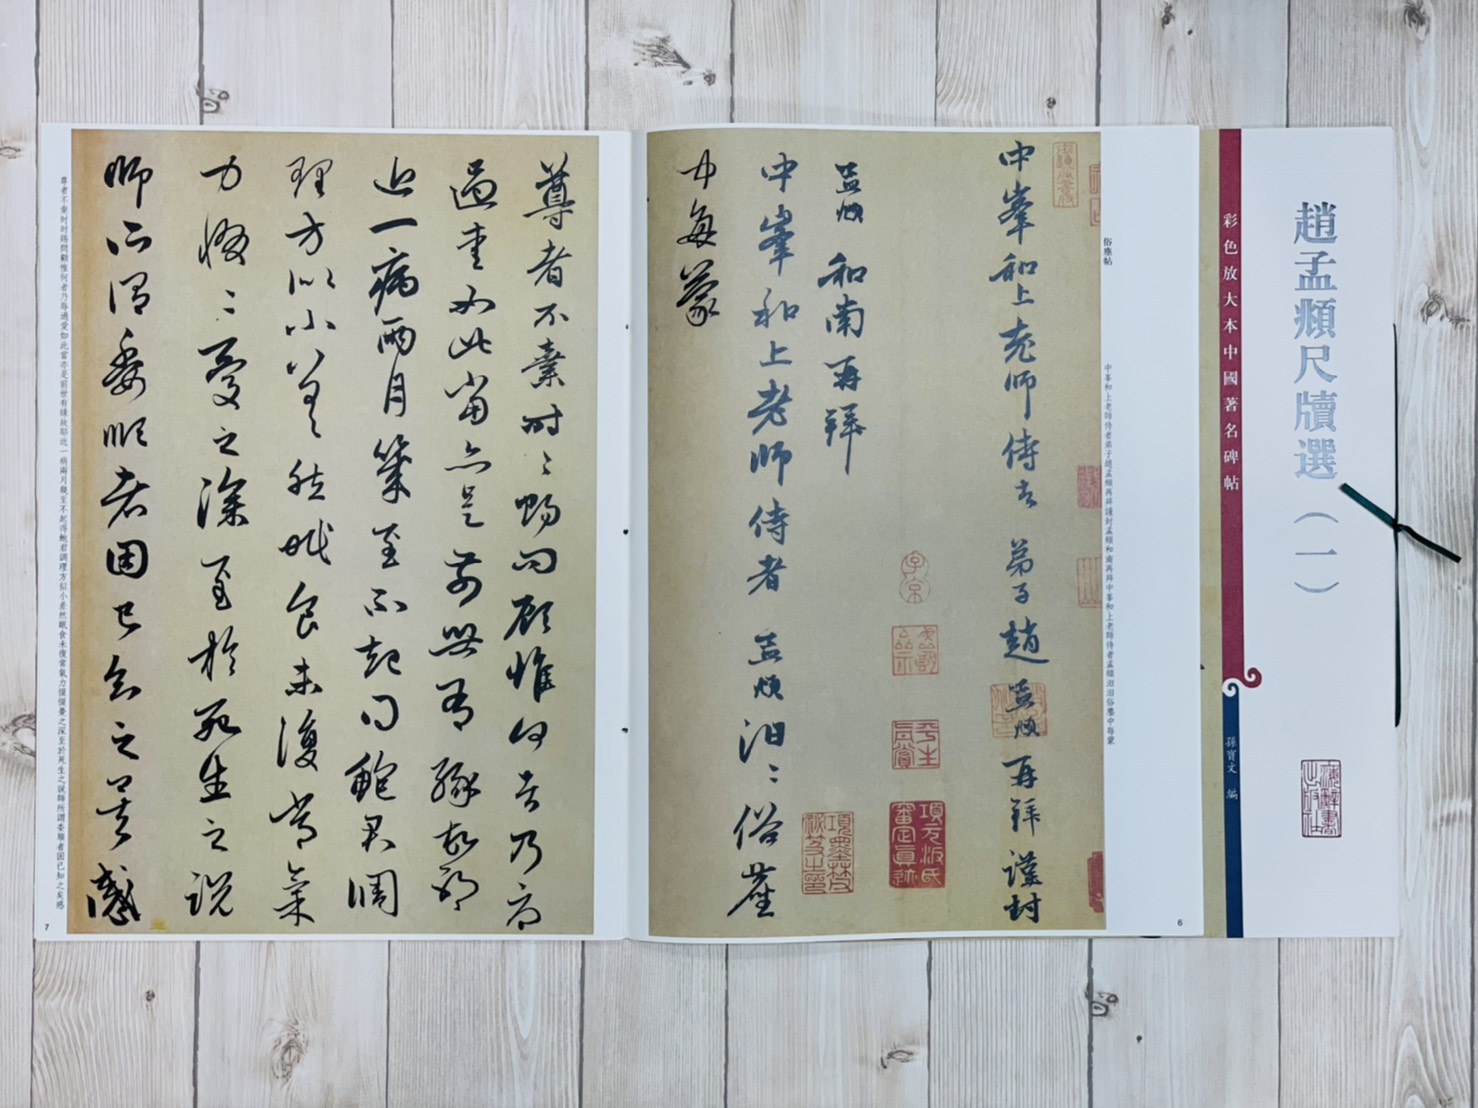 趙孟頫尺牘選（一）
彩色放大本中國著名碑帖
孫寶文 編
俗塵帖
中峯和上老師侍者弟子趙孟頫再拜謹封孟頫和南再拜中峯和上老師侍者孟頫汩汩俗塵中每蒙
6
中峯和上老師侍者 弟子趙孟頫再拜謹封
孟頫和南再拜
中峯和上老師侍者孟頫汩〻俗塵
中每蒙
子京
平生真賞
項元汴氏審定真迹
項墨林父秘笈之印
尊者不棄時〻賜問顧惟何者乃辱
過愛如此當亦是前世有緣故耶
近一病兩月幾至不起得鮑君調
理方似小差然眠食未復常氣
力惙〻憂之深至於死生之說
師所謂委順者固已知之矣感
尊者不棄時時賜問顧惟何者乃辱過愛如此當亦是前世有緣故耶近一病兩月幾至不起得鮑君調理方似小差然眠食未復常氣力惙惙憂之深至於死生之說師所謂委順者固已知之矣感
7